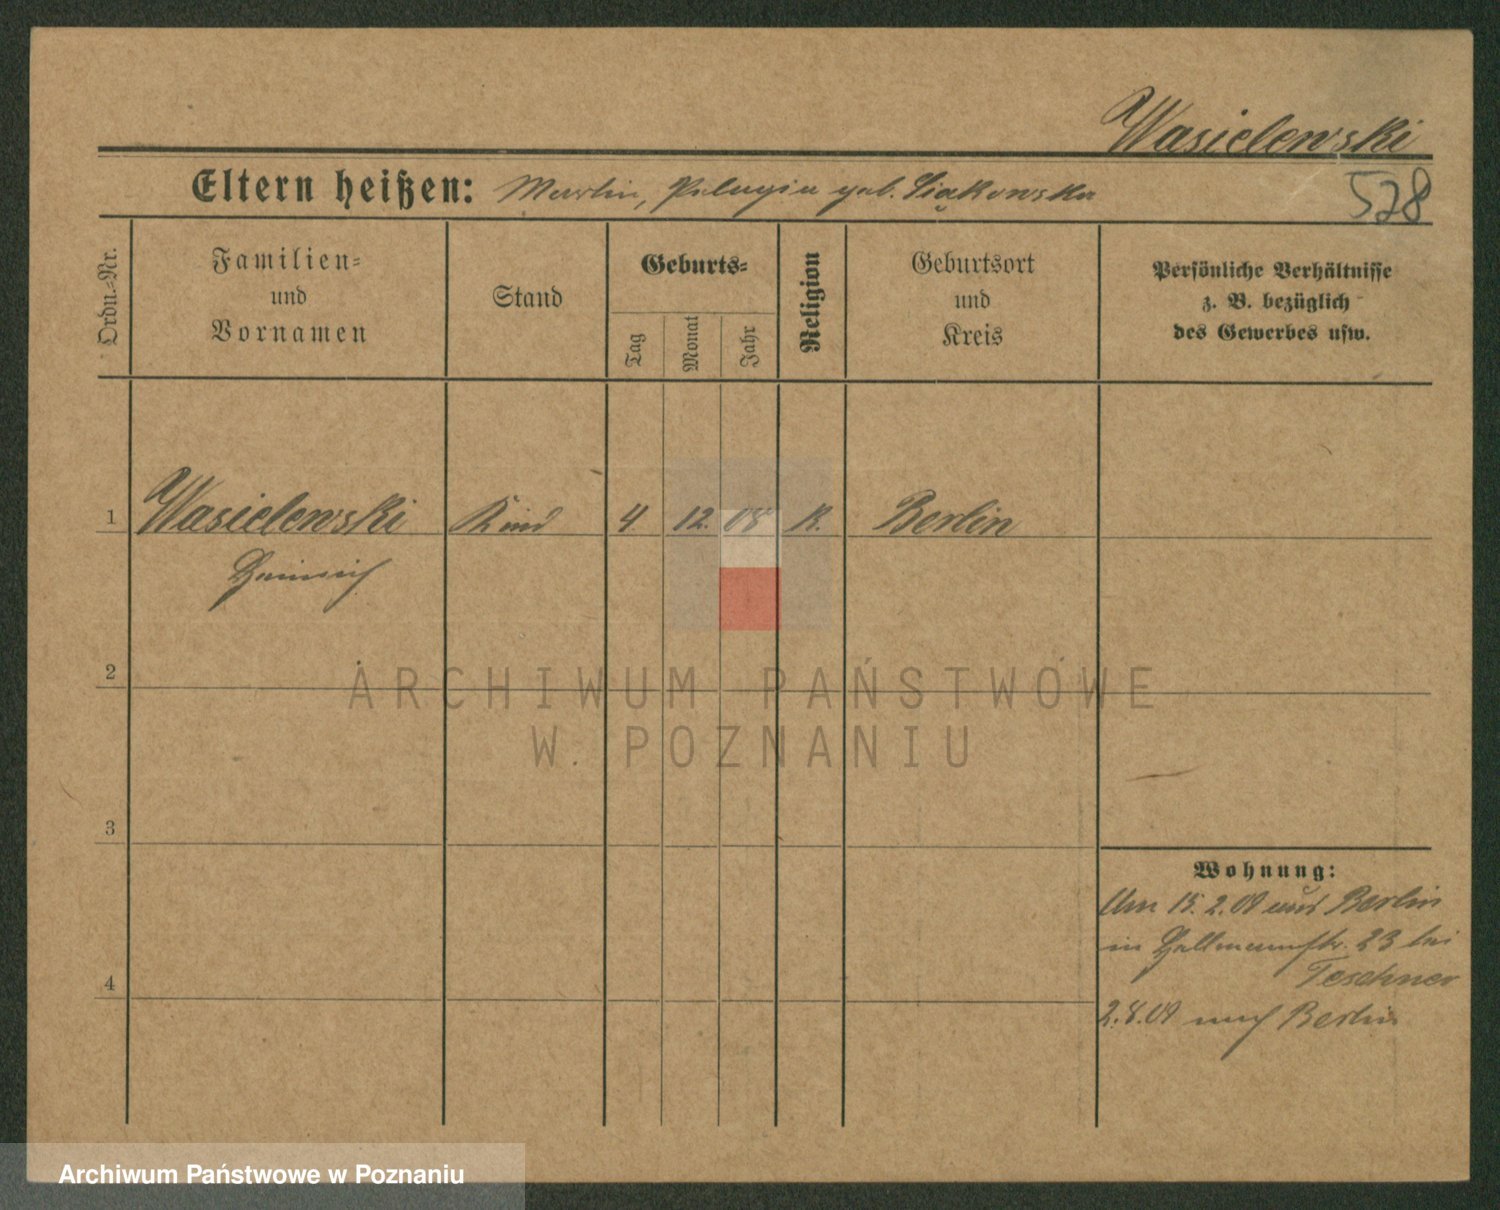 Wasielewski
Eltern heißen: Martin, Pelagia geb. Siąkowska
528
Ordn.-Nr.
Familien-
und
Vornamen
Stand
Geburts-
Tag
Monat
Jahr
Religion
Geburtsort
und
Kreis
Persönliche Verhältnisse
z. B. bezüglich
des Gewerbes usw.
1 Wasielewski Kind 4 12. 08 K. Berlin
Heinrich
2
ARCHIWUM PAŃSTWOWE
W POZNANIU
3
Wohnung:
Am 15.2.09 aus Berlin
in 23 bei
Teschner
4
2.8.09 nach Berlin
Archiwum Państwowe w Poznaniu